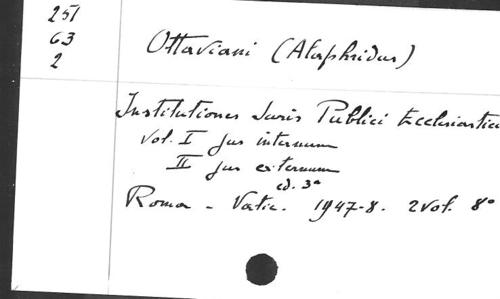 251
63
2
Ottaviani (Alaphridus)
Institutiones Juris Publici Ecclesiastici
vol. I jus internum
II jus externum
ed. 3ª
Roma - Vatic. 1947-8. 2 vol. 8°